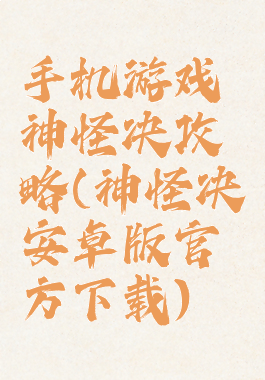 手机游戏
神怪决攻
略(神怪决
安卓版官
方下载)